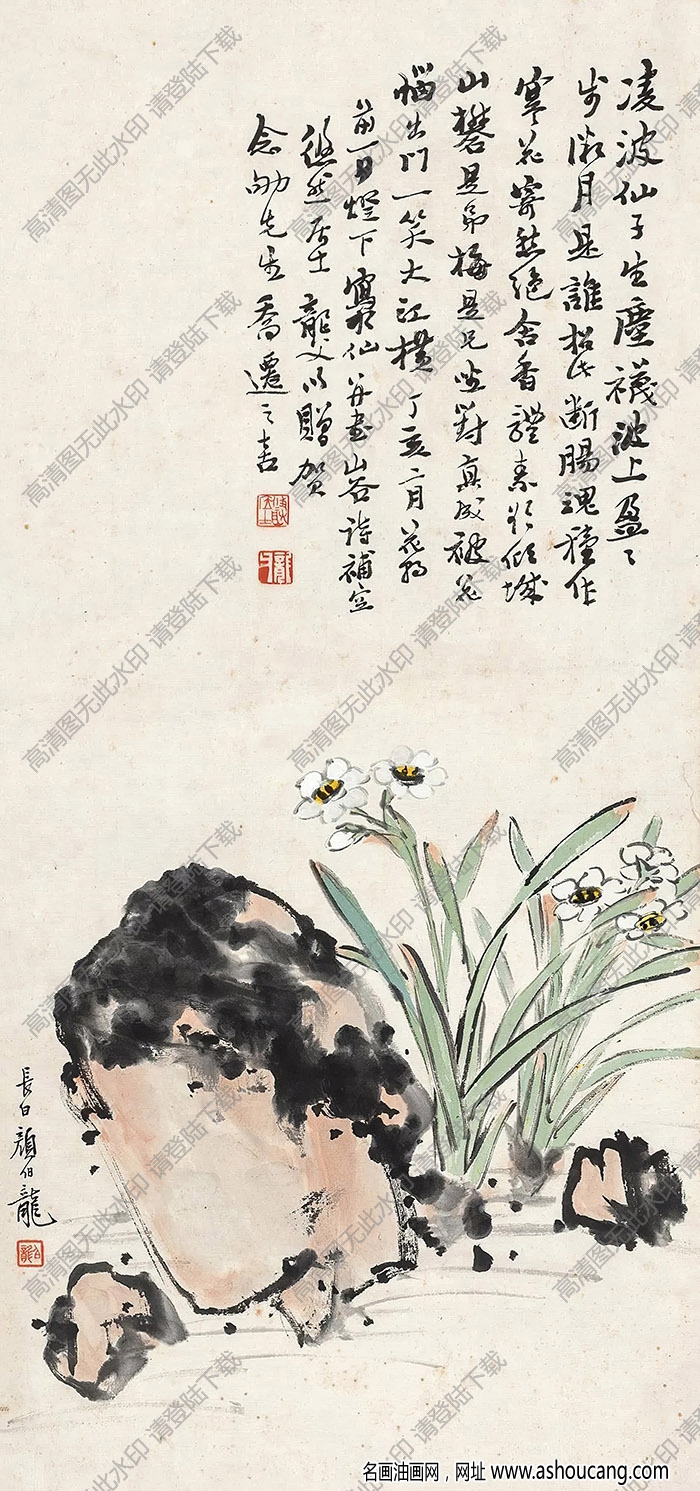 凌波仙子生塵襪波上盈〻
步微月是誰招此斷腸魂種作
寒花寄愁絕含香體素欲傾城
山礬是弟梅是兄坐對真成被花
惱出門一笑大江橫 丁亥二月花朝
前一日燈下寫水仙并書山谷詩補空
然居士 龍父以贈賀
念劬先生喬遷之喜
長白顏伯龍
高清图无此水印 请登陆下载
名画油画网，网址 www.ashoucang.com